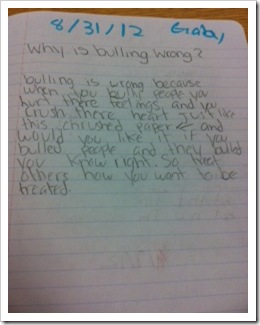 8/31/12 Gaby
Why is bulling wrong?
bulling is wrong because
when you bulle people you
hurt there feelings and you
crush there heart just like
this chrushed paper ← and
would you like it if you
bulled people and they bulled
you know right. So treat
others how you want to be
treated.